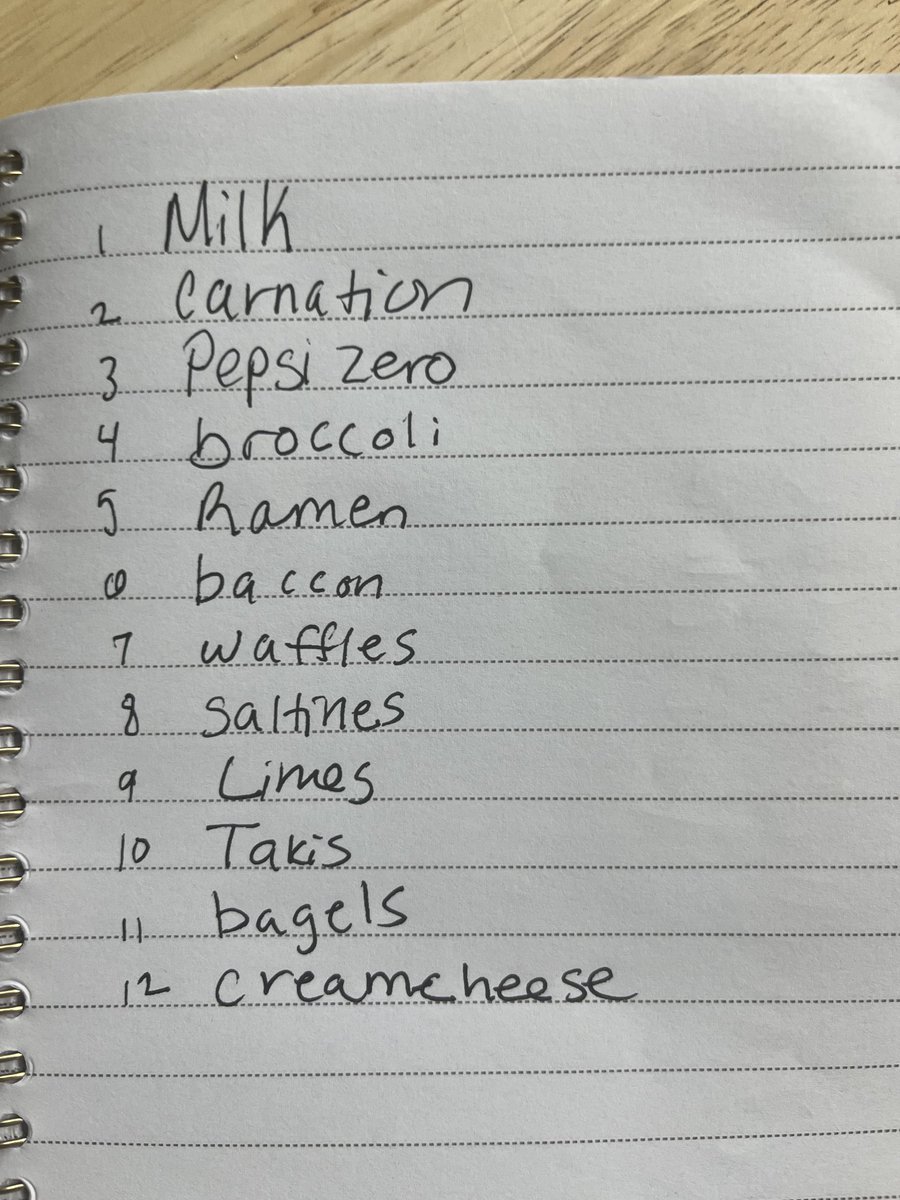 1 Milk
2 Carnation
3 Pepsi Zero
4 broccoli
5 Ramen
6 baccon
7 waffles
8 Saltines
9 Limes
10 Takis
11 bagels
12 creamcheese